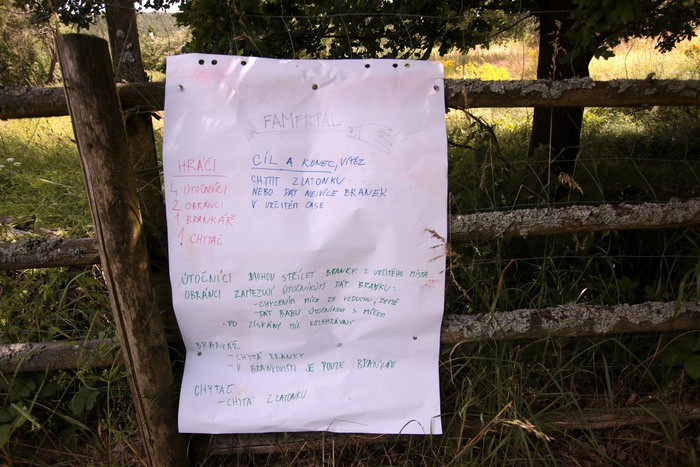 FAMFRPÁL
HRÁČI
4 ÚTOČNÍCI
2 OBRÁNCI
1 BRANKÁŘ
1 CHYTAČ
CÍL A KONEC, VÍTĚZ
CHYTIT ZLATONKU
NEBO DÁT NEJVÍCE BRANEK
V URČITÉM ČASE
ÚTOČNÍCI MOHOU STŘÍLET BRANKY Z URČITÉHO MÍSTA
OBRÁNCI ZAMEZUJÍ ÚTOČNÍKŮM DÁT BRANKU:
- CHYCENÍM MÍČE ZE VZDUCHU, ZEMĚ
- DÁT BABU ÚTOČNÍKOVI S MÍČEM
- PO ZÍSKÁNÍ MÍČ
BRANKÁŘ
- CHYTÁ BRANKY
- V BRANKOVIŠTI JE POUZE BRANKÁŘ
CHYTAČ
- CHYTÁ ZLATONKU